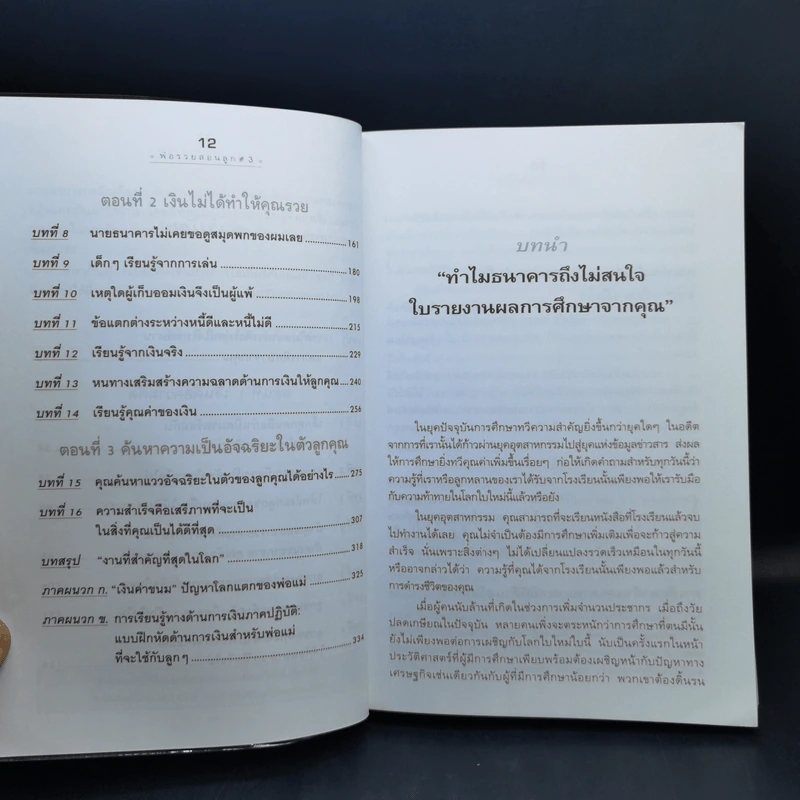 12
« พ่อรวยสอนลูก # 3 »
ตอนที่ 2 เงินไม่ได้ทำให้คุณรวย
บทที่ 8 นายธนาคารไม่เคยขอดูสมุดพกของผมเลย 161
บทที่ 9 เด็กๆ เรียนรู้จากการเล่น 180
บทที่ 10 เหตุใดผู้เก็บออมเงินจึงเป็นผู้แพ้ 198
บทที่ 11 ข้อแตกต่างระหว่างหนี้ดีและหนี้ไม่ดี 215
บทที่ 12 เรียนรู้จากเงินจริง 229
บทที่ 13 หนทางเสริมสร้างความฉลาดด้านการเงินให้ลูกคุณ 240
บทที่ 14 เรียนรู้คุณค่าของเงิน 256
ตอนที่ 3 ค้นหาความเป็นอัจฉริยะในตัวลูกคุณ
บทที่ 15 คุณค้นหาแววอัจฉริยะในตัวของลูกคุณได้อย่างไร 275
บทที่ 16 ความสำเร็จคือเสรีภาพที่จะเป็น
ในสิ่งที่คุณเป็นได้ดีที่สุด 307
บทสรุป "งานที่สำคัญที่สุดในโลก" 318
ภาคผนวก ก. "เงินค่าขนม" ปัญหาโลกแตกของพ่อแม่ 325
ภาคผนวก ข. การเรียนรู้ทางด้านการเงินภาคปฏิบัติ:
แบบฝึกหัดด้านการเงินสำหรับพ่อแม่
ที่จะใช้กับลูกๆ 334
บทนำ
"ทำไมธนาคารถึงไม่สนใจ
ใบรายงานผลการศึกษาจากคุณ"
ในยุคปัจจุบันการศึกษาทวีความสำคัญยิ่งขึ้นกว่ายุคใดๆ ในอดีต
จากการที่เรานั้นได้ก้าวผ่านยุคอุตสาหกรรมไปสู่ยุคแห่งข้อมูลข่าวสาร ส่งผล
ให้การศึกษายิ่งทวีคุณค่าเพิ่มขึ้นเรื่อยๆ ก่อให้เกิดคำถามสำหรับทุกวันนี้ว่า
ความรู้ที่เราหรือลูกหลานของเราได้รับจากโรงเรียนนั้นเพียงพอให้เรารับมือ
กับความท้าทายในโลกใบใหม่นี้แล้วหรือยัง
ในยุคอุตสาหกรรม คุณสามารถที่จะเรียนหนังสือที่โรงเรียนแล้วจบ
ไปทำงานได้เลย คุณไม่จำเป็นต้องมีการศึกษาเพิ่มเติมเพื่อจะก้าวสู่ความ
สำเร็จ นั่นเพราะสิ่งต่างๆ ไม่ได้เปลี่ยนแปลงรวดเร็วเหมือนในทุกวันนี้
หรืออาจกล่าวได้ว่า ความรู้ที่คุณได้จากโรงเรียนนั้นเพียงพอแล้วสำหรับ
การดำรงชีวิตของคุณ
เมื่อผู้คนนับล้านที่เกิดในช่วงการเพิ่มจำนวนประชากร เมื่อถึงวัย
ปลดเกษียณในปัจจุบัน หลายคนเพิ่งจะตระหนักว่าการศึกษาที่ตนมีนั้น
ยังไม่เพียงพอต่อการเผชิญกับโลกใบใหม่ใบนี้ นับเป็นครั้งแรกในหน้า
ประวัติศาสตร์ที่ผู้มีการศึกษาเพียบพร้อมต้องเผชิญหน้ากับปัญหาทาง
เศรษฐกิจเช่นเดียวกันกับผู้ที่มีการศึกษาน้อยกว่า พวกเขาต้องดิ้นรน